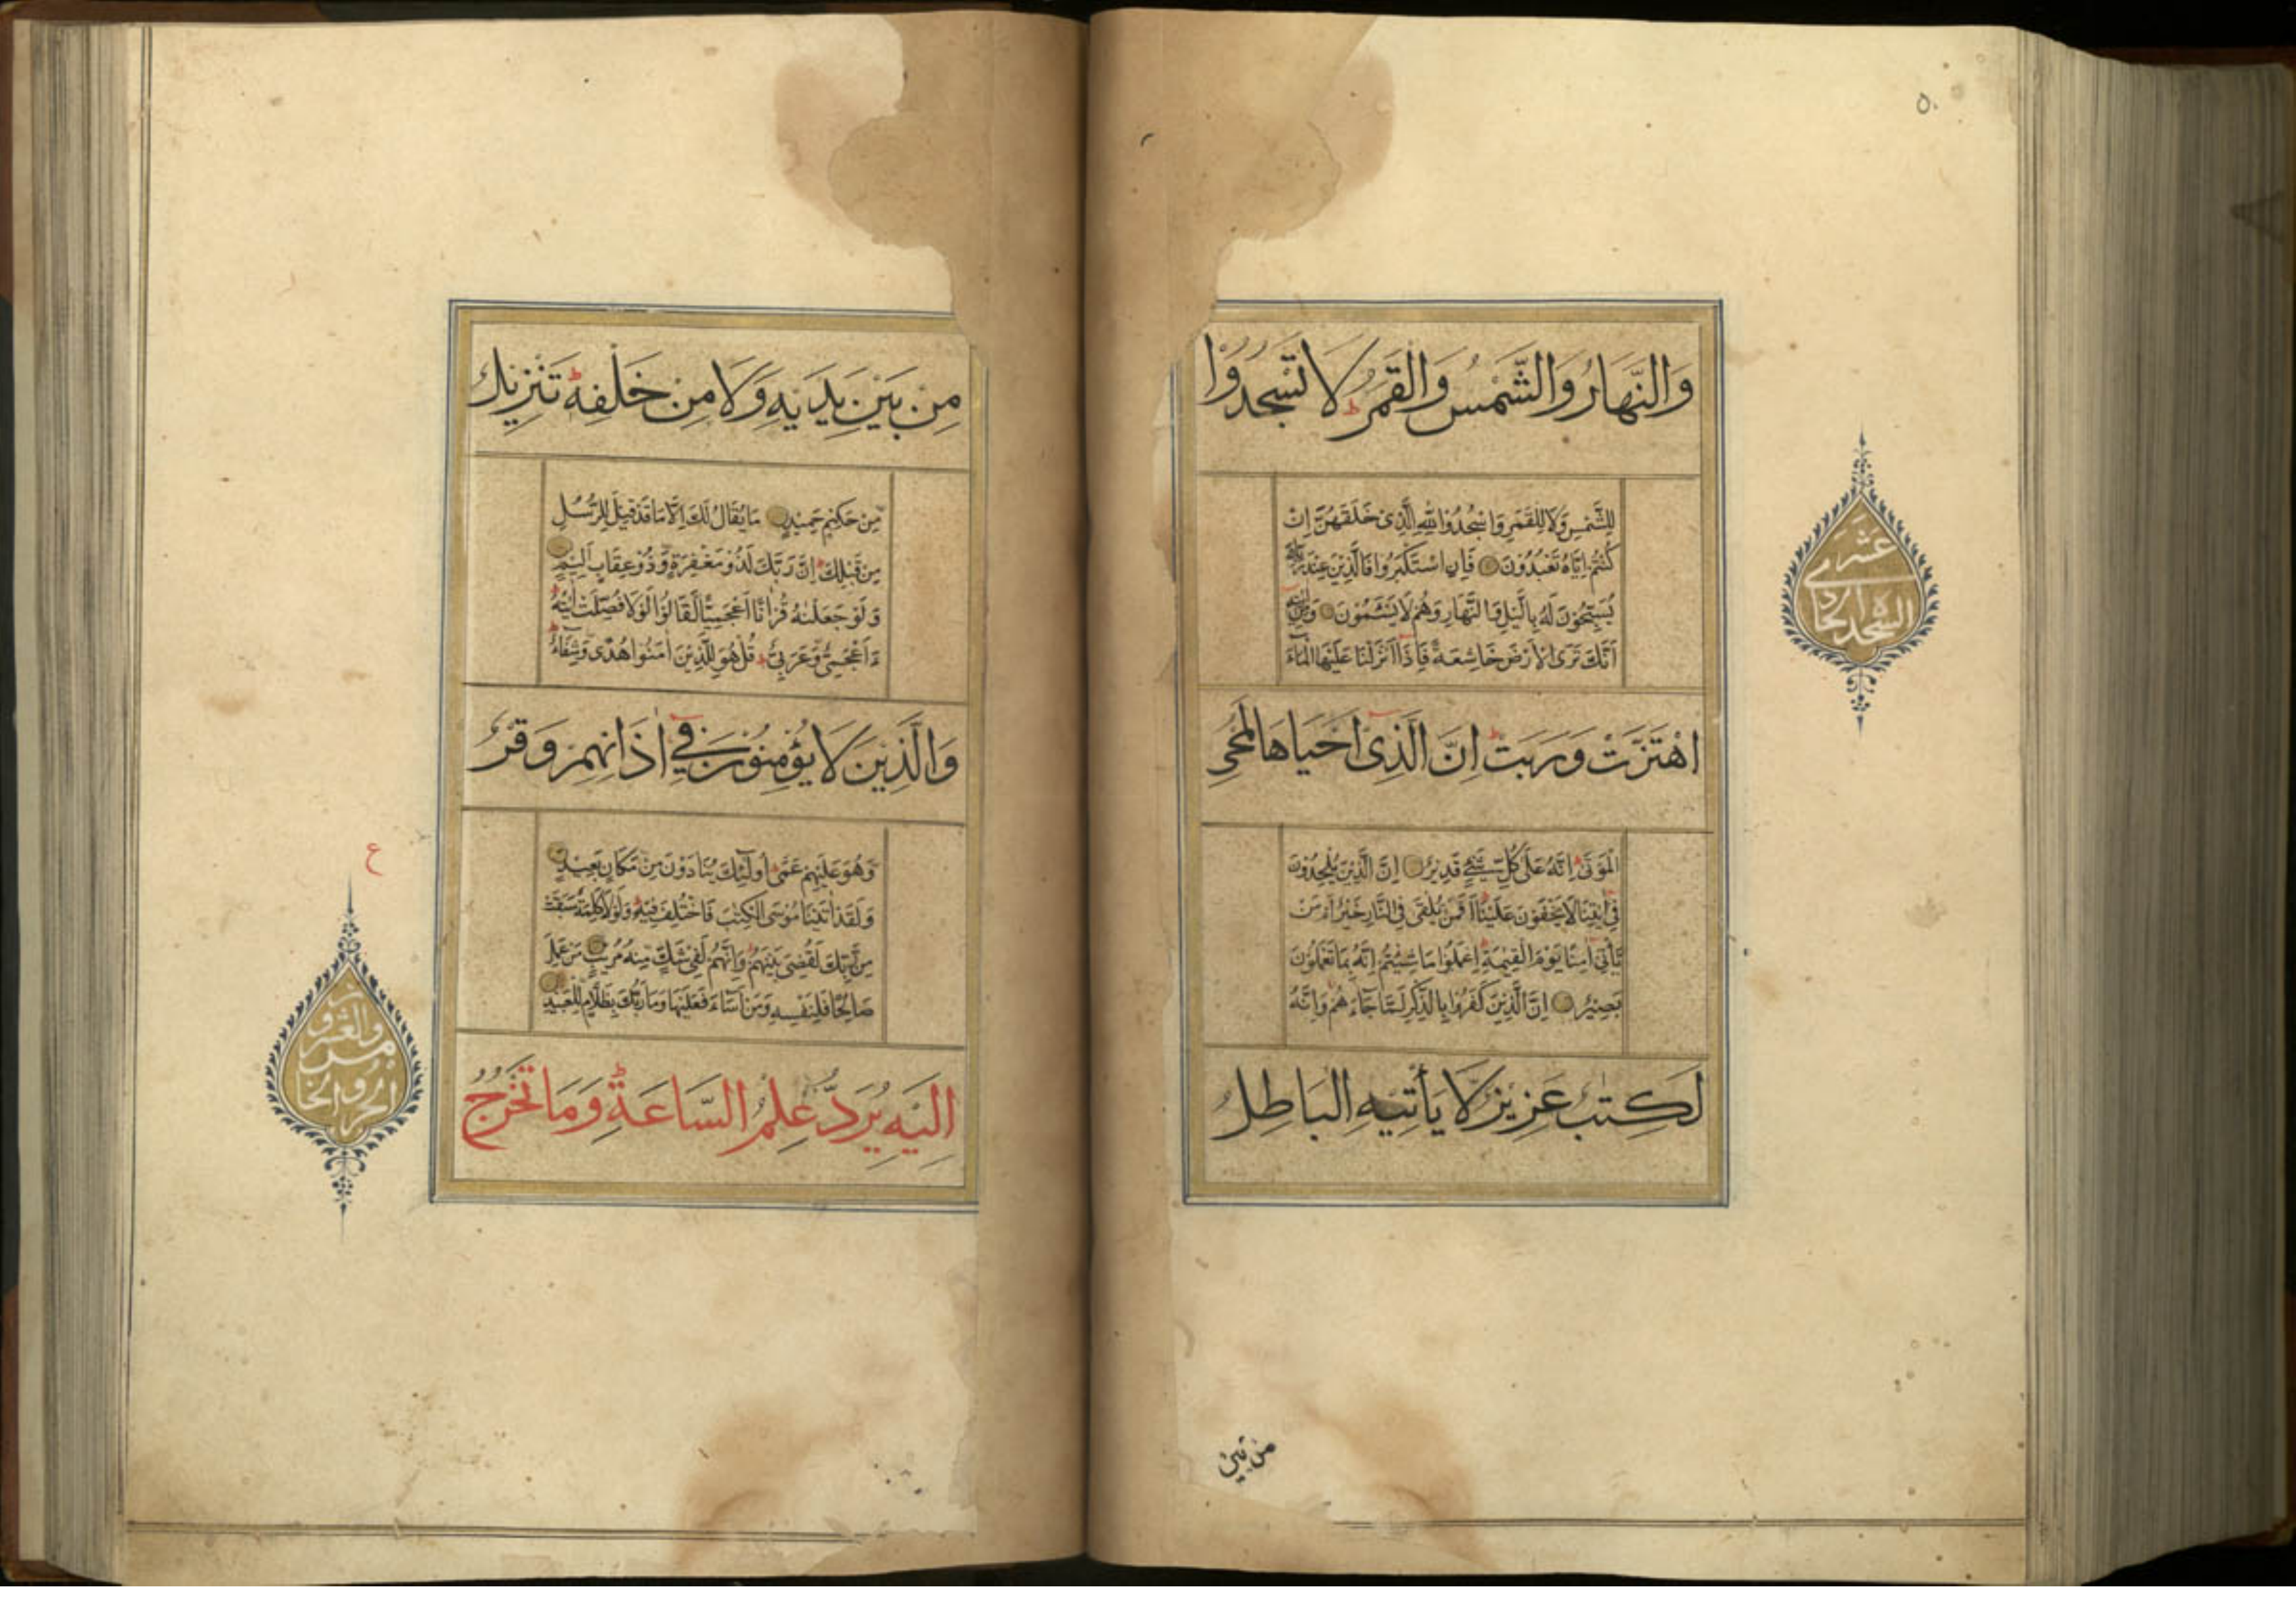 ٥٠
وَالنَّهَارُ وَالشَّمْسُ وَالْقَمَرُ ط لَا تَسْجُدُوْا
لِلشَّمْسِ وَلَا لِلْقَمَرِ وَاسْجُدُوْا لِلّٰهِ الَّذِیْ خَلَقَهُنَّ اِنْ
كُنْتُمْ اِیَّاهُ تَعْبُدُوْنَ فَاِنِ اسْتَكْبَرُوْا فَالَّذِیْنَ عِنْدَ رَبِّكَ
یُسَبِّحُوْنَ لَهٗ بِالَّیْلِ وَالنَّهَارِ وَهُمْ لَا یَسْـَٔمُوْنَ وَمِنْ اٰیٰتِهٖ
اَنَّكَ تَرَى الْاَرْضَ خَاشِعَةً فَاِذَا اَنْزَلْنَا عَلَیْهَا الْمَآءَ
اهْتَزَّتْ وَرَبَتْ ط اِنَّ الَّذِیْ اَحْیَاهَا لَمُحْیِ
الْمَوْتٰى ط اِنَّهٗ عَلٰى كُلِّ شَیْءٍ قَدِیْرٌ اِنَّ الَّذِیْنَ یُلْحِدُوْنَ
فِیْ اٰیٰتِنَا لَا یَخْفَوْنَ عَلَیْنَا ط اَفَمَنْ یُلْقٰى فِی النَّارِ خَیْرٌ اَمْ مَنْ
یَّاْتِیْ اٰمِنًا یَوْمَ الْقِیٰمَةِ ط اِعْمَلُوْا مَا شِئْتُمْ اِنَّهٗ بِمَا تَعْمَلُوْنَ
بَصِیْرٌ اِنَّ الَّذِیْنَ كَفَرُوْا بِالذِّكْرِ لَمَّا جَآءَهُمْ وَاِنَّهٗ
لَكِتٰبٌ عَزِیْزٌ لَا یَأْتِیْهِ الْبَاطِلُ
من بین
عشر
السجدة
مِنْ بَیْنِ یَدَیْهِ وَلَا مِنْ خَلْفِهٖ ط تَنْزِیْلٌ
مِّنْ حَكِیْمٍ حَمِیْدٍ مَا یُقَالُ لَكَ اِلَّا مَا قَدْ قِیْلَ لِلرُّسُلِ
مِنْ قَبْلِكَ ط اِنَّ رَبَّكَ لَذُوْ مَغْفِرَةٍ وَّذُوْ عِقَابٍ اَلِیْمٍ
وَلَوْ جَعَلْنٰهُ قُرْاٰنًا اَعْجَمِیًّا لَّقَالُوْا لَوْلَا فُصِّلَتْ اٰیٰتُهٗ ط
ءَاَعْجَمِیٌّ وَّعَرَبِیٌّ ط قُلْ هُوَ لِلَّذِیْنَ اٰمَنُوْا هُدًى وَّشِفَآءٌ ط
وَالَّذِیْنَ لَا یُؤْمِنُوْنَ فِیْ اٰذَانِهِمْ وَقْرٌ
وَّهُوَ عَلَیْهِمْ عَمًى ط اُولٰٓئِكَ یُنَادَوْنَ مِنْ مَّكَانٍ بَعِیْدٍ
وَلَقَدْ اٰتَیْنَا مُوْسَى الْكِتٰبَ فَاخْتُلِفَ فِیْهِ ط وَلَوْلَا كَلِمَةٌ سَبَقَتْ
مِنْ رَّبِّكَ لَقُضِیَ بَیْنَهُمْ ط وَاِنَّهُمْ لَفِیْ شَكٍّ مِّنْهُ مُرِیْبٍ مَنْ عَمِلَ
صَالِحًا فَلِنَفْسِهٖ وَمَنْ اَسَآءَ فَعَلَیْهَا وَمَا رَبُّكَ بِظَلَّامٍ لِّلْعَبِیْدِ
اِلَیْهِ یُرَدُّ عِلْمُ السَّاعَةِ ط وَمَا تَخْرُجُ
ع
والعشرون